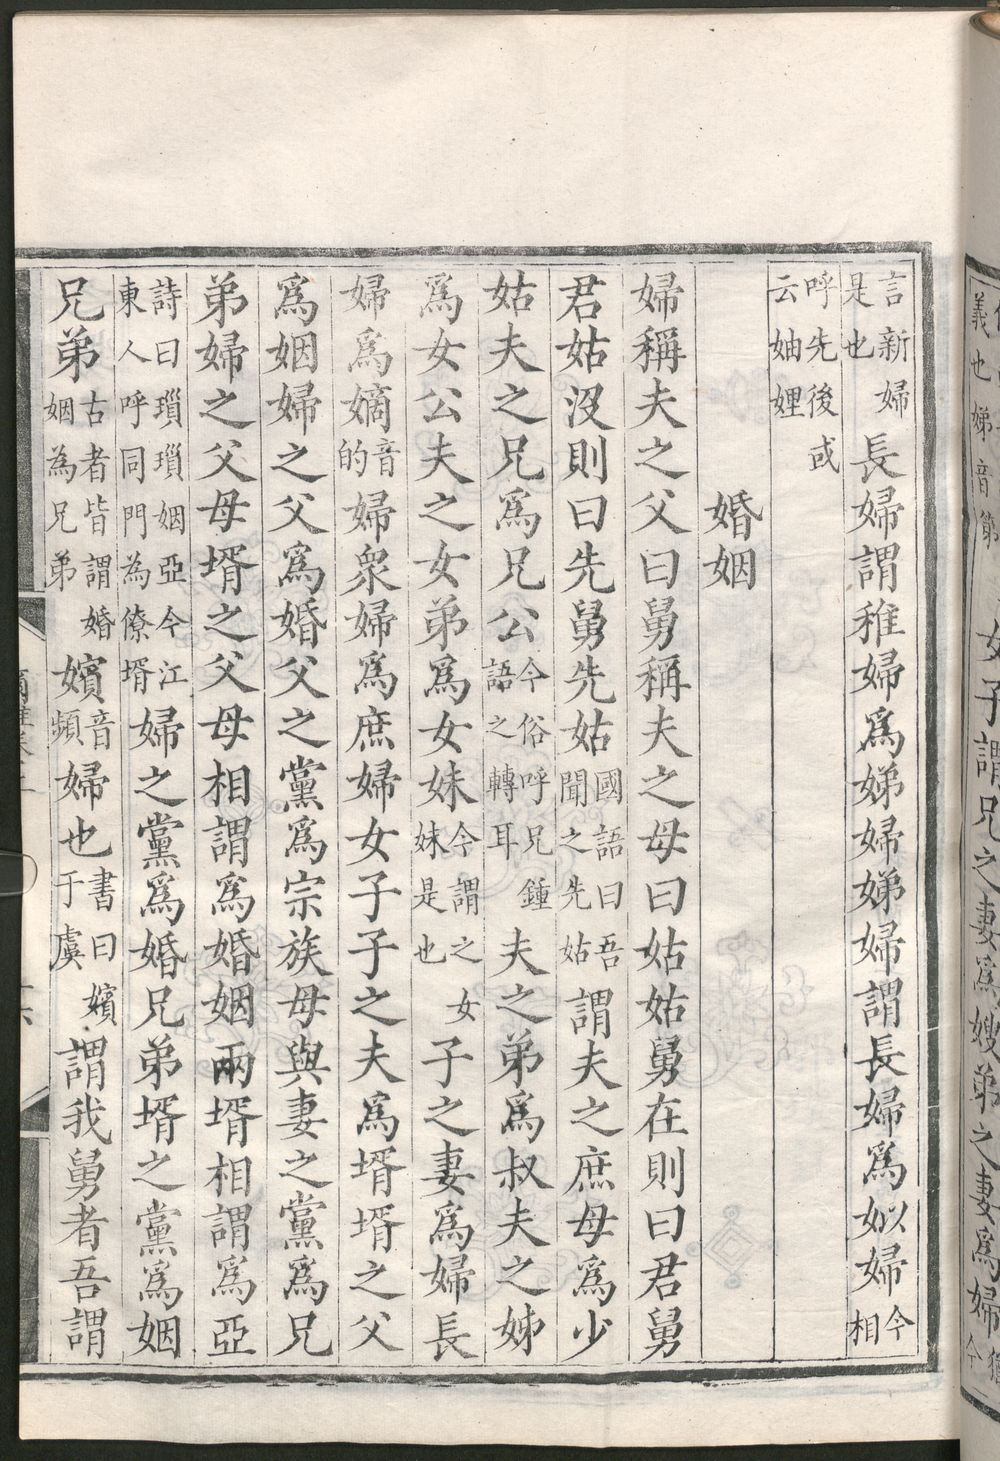 義也娣音 女子謂兄之妻爲嫂弟之妻爲婦
言新婦是也長婦謂稚婦爲娣婦娣婦謂長婦爲姒婦今相
呼先後或云妯娌
婚姻
婦稱夫之父曰舅稱夫之母曰姑姑舅在則曰君舅
君姑沒則曰先舅先姑國語曰吾聞之先姑謂夫之庶母爲少
姑夫之兄爲兄公今俗呼兄鍾語之轉耳夫之弟爲叔夫之姊
爲女公夫之女弟爲女妹今謂之女妹是也子之妻爲婦長
婦爲嫡音的婦衆婦爲庶婦女子子之夫爲壻壻之父
爲姻婦之父爲婚父之黨爲宗族母與妻之黨爲兄
弟婦之父母壻之父母相謂爲婚姻兩壻相謂爲亞
詩曰瑣瑣姻亞今江東人呼同門為僚壻婦之黨爲婚兄弟壻之黨爲姻
兄弟古者皆謂婚姻為兄弟嬪音頻婦也書曰嬪于虞謂我舅者吾謂